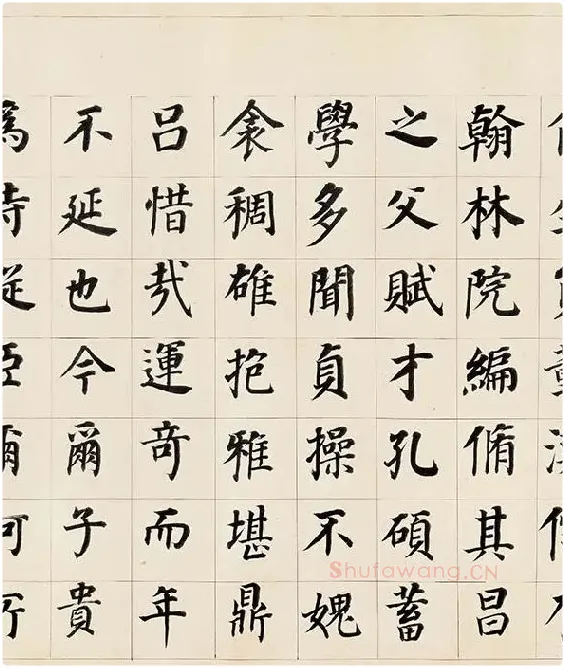 翰林院編脩其昌
之父賦才孔碩蓄
學多聞貞操不媿
衾稠雄抱雅堪鼎
呂惜哉運奇而年
不延也今爾子貴
為侍從臣爾
Shufawang.CN